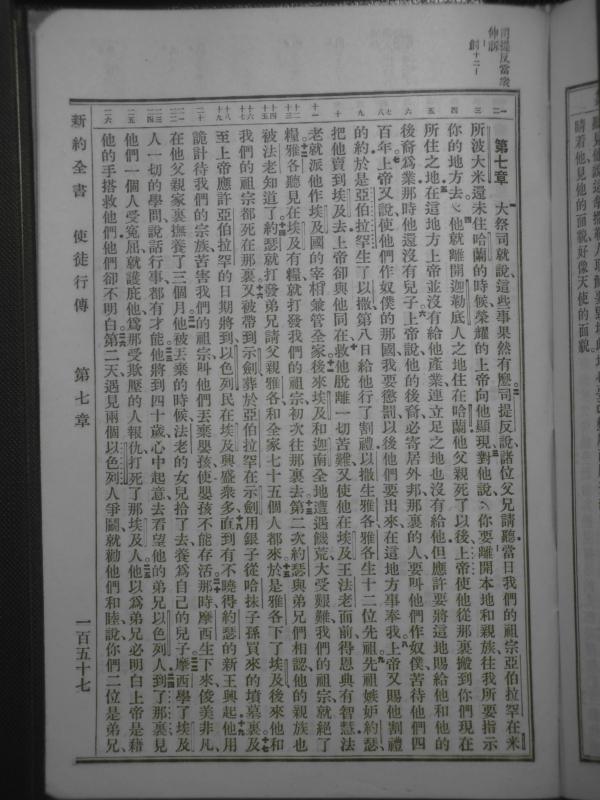 司提反當衆
伸訴
創十二1
第七章 大祭司就說這些事果然有麼司提反說諸位父兄請聽當日我們的祖宗亞伯拉罕在米
所波大米還未住哈蘭的時候榮耀的上帝向他顯現對他說你要離開本地和親族往我所要指示
你的地方去他就離開迦勒底人之地住在哈蘭他父親死了以後上帝使他從那裏搬到你們現在
所住之地在這地方上帝並沒有給他產業連立足之地也沒有給他但應許要將這地賜給他和他的
後裔爲業那時他還沒有兒子上帝說他的後裔必寄居外邦那裏的人要叫他們作奴僕苦待他們四
百年上帝又說使他們作奴僕的那國我要懲罰以後他們要出來在這地方事奉我上帝又賜他割禮
的約於是亞伯拉罕生了以撒第八日給他行了割禮以撒生雅各雅各生十二位先祖先祖嫉妒約瑟
把他賣到埃及去上帝卻與他同在救他脫離一切苦難又使他在埃及王法老面前得恩典有智慧法
老就派他作埃及國的宰相兼管全家後來埃及和迦南全地遭遇饑荒大受艱難我們的祖宗就絕了
糧雅各聽見在埃及有糧就打發我們的祖宗初次往那裏去第二次約瑟與弟兄們相認他的親族也
被法老知道了約瑟就打發弟兄請父親雅各和全家七十五個人都來於是雅各下了埃及後來他和
我們的祖宗都死在那裏又被帶到示劍葬於亞伯拉罕在示劍用銀子從哈抹子孫買來的墳墓裏及
至上帝應許亞伯拉罕的日期將到以色列民在埃及興盛衆多直到有不曉得約瑟的新王興起他用
詭計待我們的宗族苦害我們的祖宗叫他們丟棄嬰孩使嬰孩不能存活那時摩西生下來俊美非凡
在他父親家裏撫養了三個月他被丟棄的時候法老的女兒拾了去養爲自己的兒子摩西學了埃及
人一切的學問說話行事都有才能他將到四十歲心中起意去看望他的弟兄以色列人到了那裏見
他們一個人受寃屈就護庇他爲那受欺壓的人報仇打死了那埃及人他以爲弟兄必明白上帝是藉
他的手搭救他們他們卻不明白第二天遇見兩個以色列人爭鬬就勸他們和睦說你們二位是弟兄
新約全書 使徒行傳 第七章 一百五十七